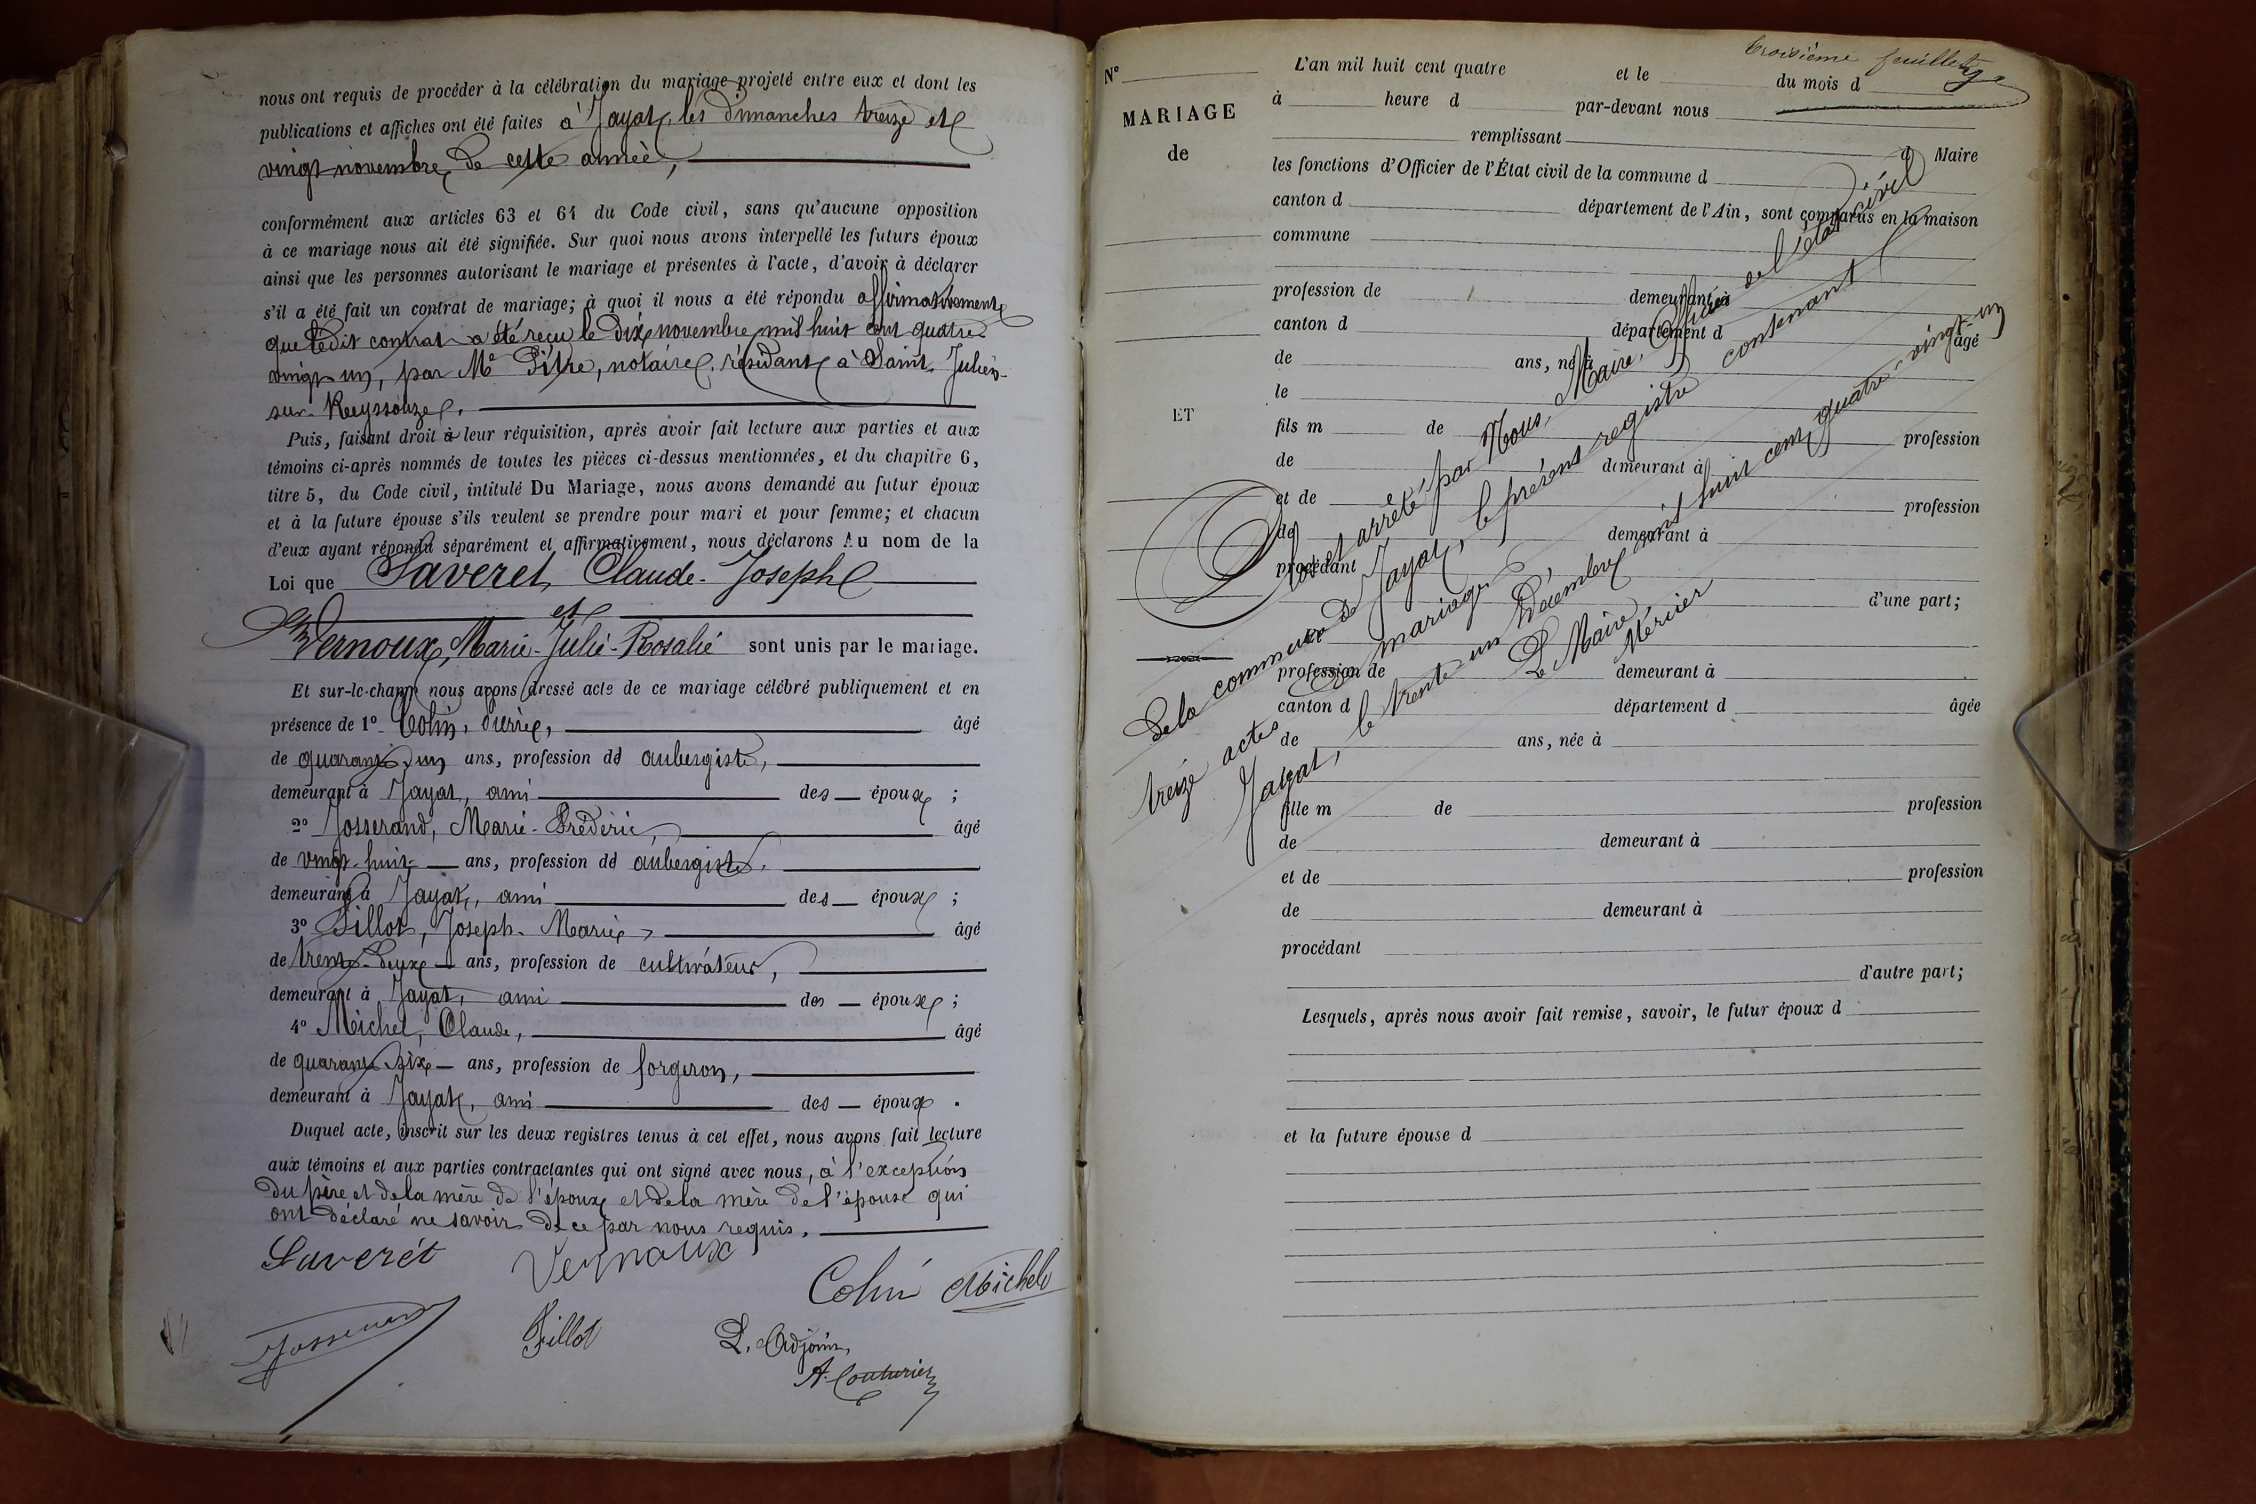 nous ont requis de procéder à la célébration du mariage projeté entre eux et dont les
publications et affiches ont été faites à Jayat, les dimanches treize et
vingt novembre de cette année,
conformément aux articles 63 et 64 du Code civil, sans qu'aucune opposition
à ce mariage nous ait été signifiée. Sur quoi nous avons interpellé les futurs époux
ainsi que les personnes autorisant le mariage et présentes à l'acte, d'avoir à déclarer
s'il a été fait un contrat de mariage; à quoi il nous a été répondu affirmativement
que ledit contrat a été reçu le dix novembre mil huit cent quatre
vingt un, par Me Pitre, notaire, résidant à Saint-Julien-
sur-Reyssouze.
Puis, faisant droit à leur réquisition, après avoir fait lecture aux parties et aux
témoins ci-après nommés de toutes les pièces ci-dessus mentionnées, et du chapitre 6,
titre 5, du Code civil, intitulé Du Mariage, nous avons demandé au futur époux
et à la future épouse s'ils veulent se prendre pour mari et pour femme; et chacun
d'eux ayant répondu séparément et affirmativement, nous déclarons Au nom de la
Loi que Saveret, Claude-Joseph
et
Vernoux, Marie-Julie-Rosalie sont unis par le mariage.
Et sur-le-champ nous avons dressé acte de ce mariage célébré publiquement et en
présence de 1o Colin, Pierre, âgé
de quarante-un ans, profession d' aubergiste,
demeurant à Jayat, ami des époux ;
2o Josserand, Marie-Frédéric, âgé
de vingt-huit ans, profession d' aubergiste,
demeurant à Jayat, ami des époux ;
3o Pillot, Joseph-Marie, âgé
de trente-deux ans, profession de cultivateur,
demeurant à Jayat, ami des époux ;
4o Michel, Claude, âgé
de quarante-six ans, profession de forgeron,
demeurant à Jayat, ami des époux .
Duquel acte, inscrit sur les deux registres tenus à cet effet, nous avons fait lecture
aux témoins et aux parties contractantes qui ont signé avec nous, à l'exception
du père et de la mère de l'époux et de la mère de l'épouse qui
ont déclaré ne savoir de ce par nous requis.
Saverét Vernoux
Colin Michel
Josserand Pillot L'Adjoint,
A. Couturier
troisième feuillet
No L'an mil huit cent quatre et le du mois d
à heure d par-devant nous
MARIAGE
remplissant
de
d Maire
les fonctions d'Officier de l'État civil de la commune d
canton d département de l'Ain, sont comparus en la maison
commune
profession de demeurant à
canton d département d âgé
de ans, né à
le
ET
fils m de profession
de demeurant à
et de profession
de demeurant à
procédant
d'une part;
Et
profession de demeurant à
canton d département d âgée
de ans, née à
le
fille m de profession
de demeurant à
et de profession
de demeurant à
procédant
d'autre part;
Lesquels, après nous avoir fait remise, savoir, le futur époux d
et la future épouse d
Clos et arrêté par Nous, Maire, Officier de l'état civil
de la commune de Jayat, le présent registre contenant
treize actes de mariage
Jayat, le trente un Décembre mil huit cent quatre-vingt-un
Le Maire
Mérier